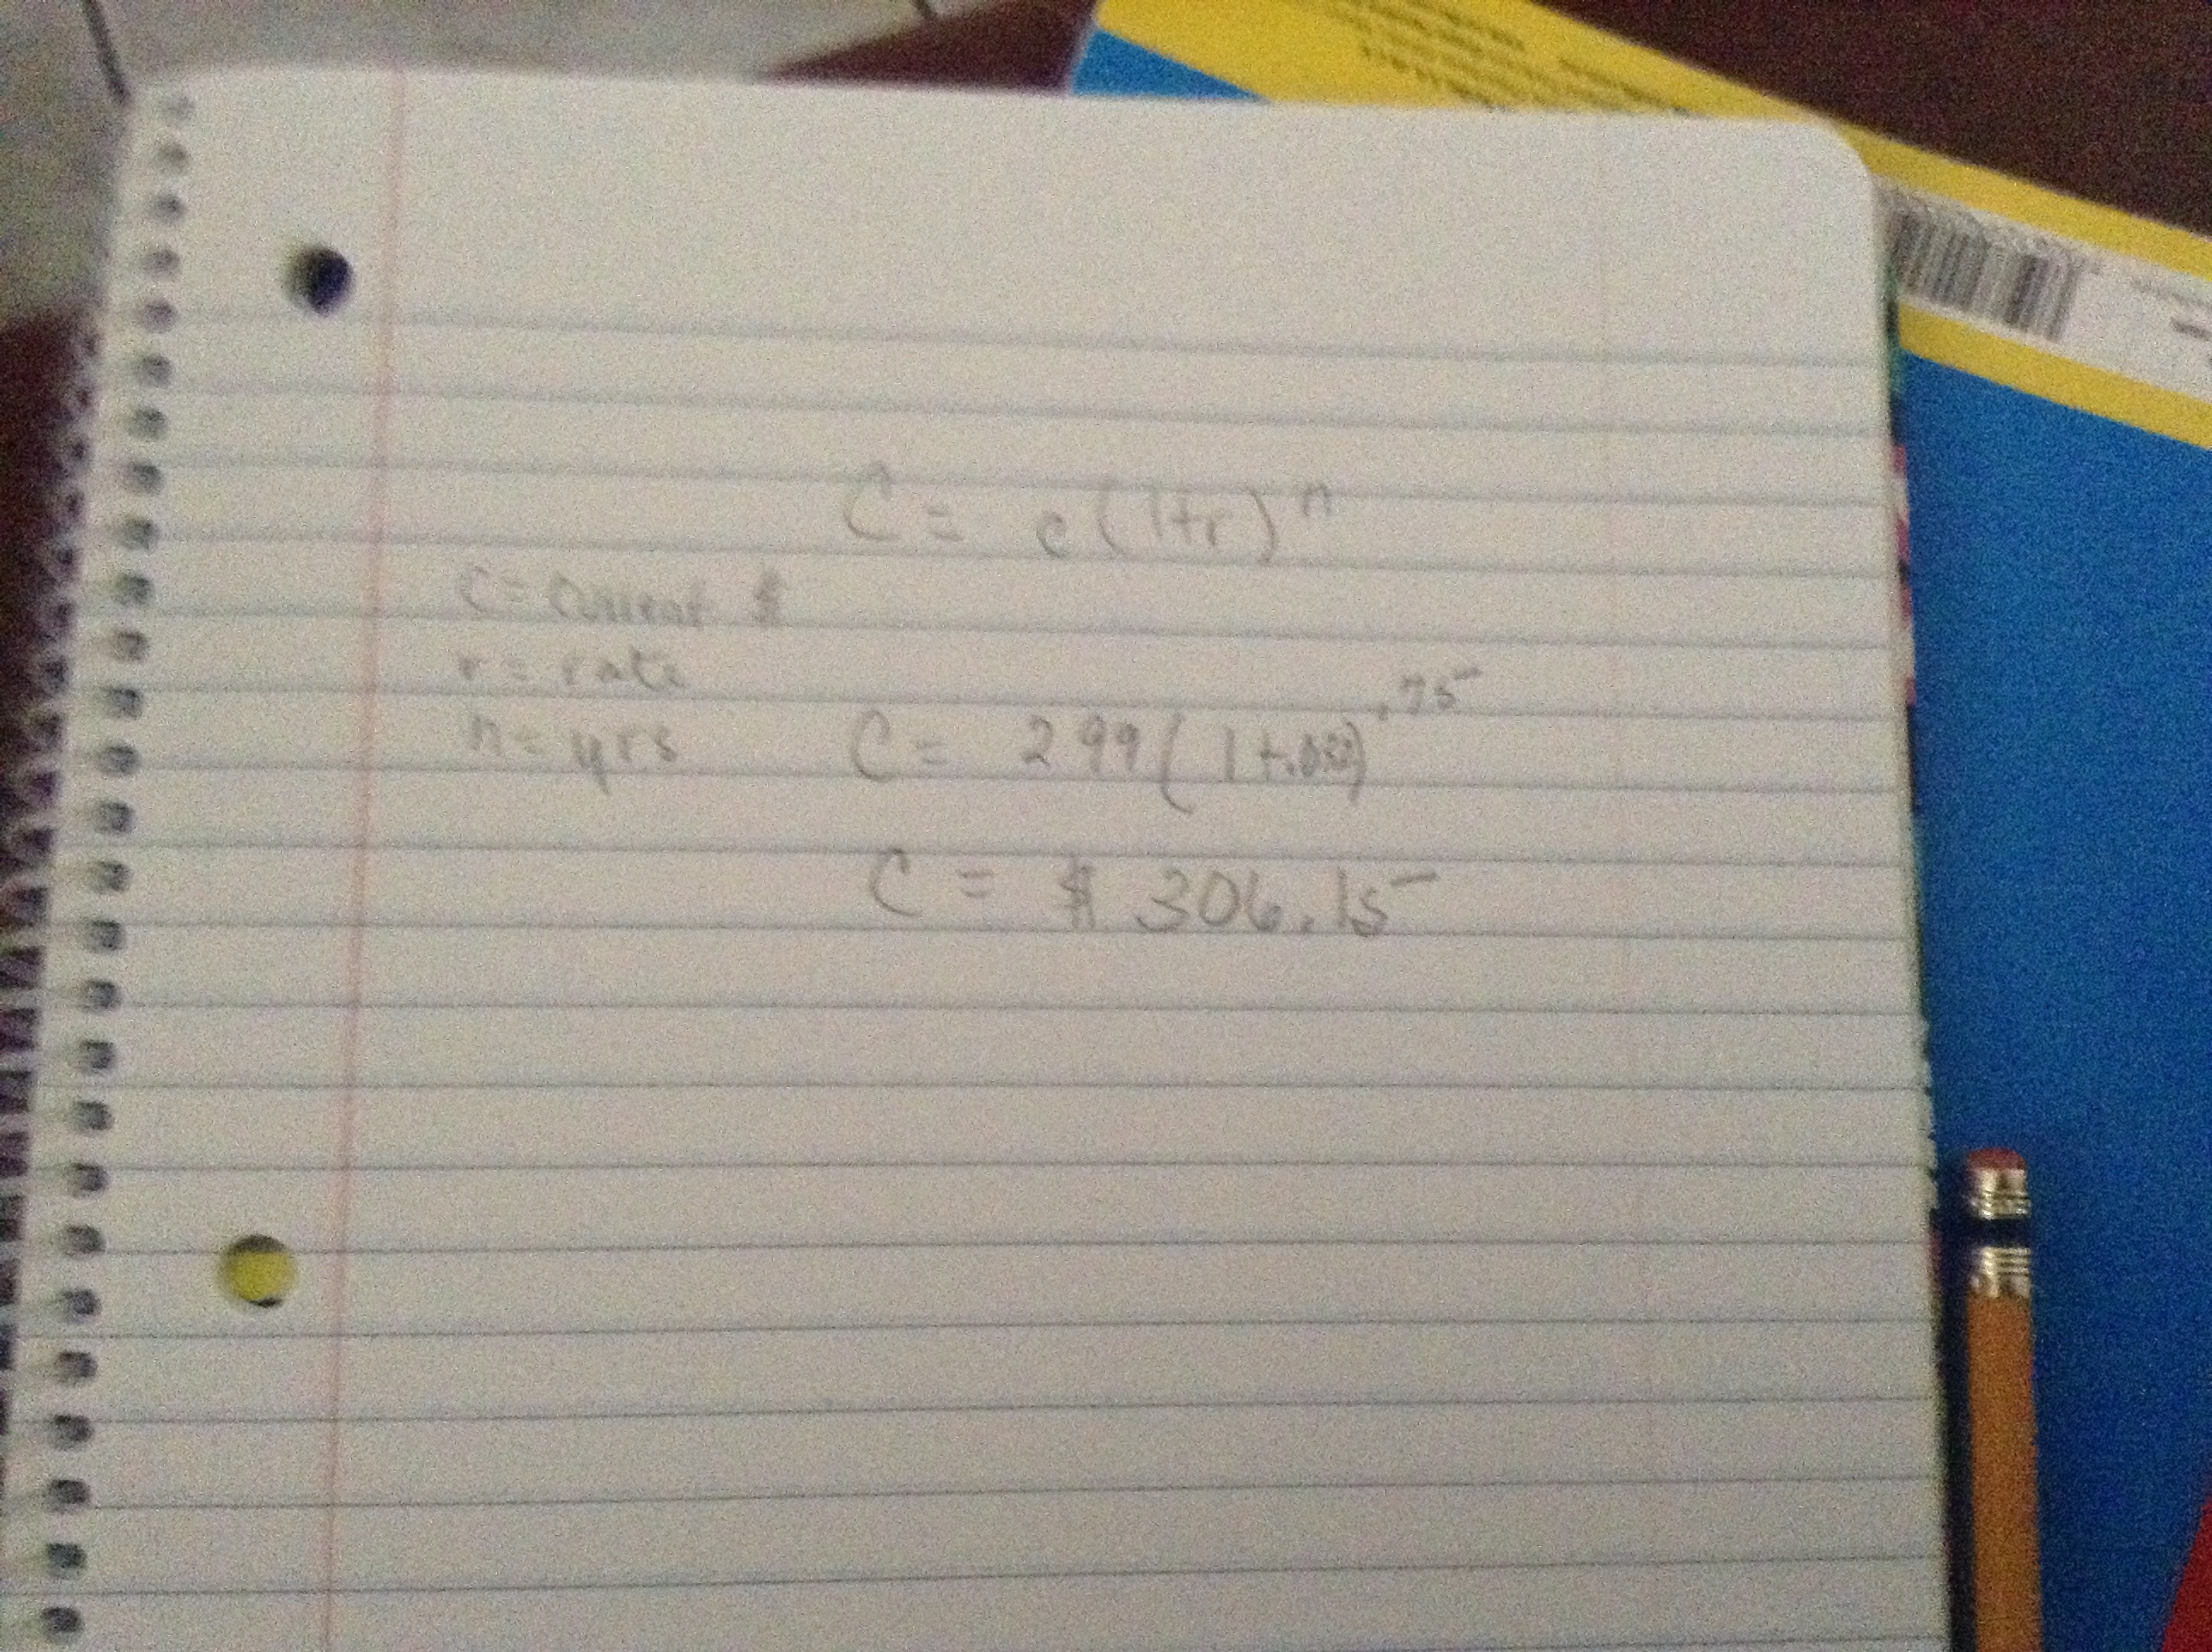 C = c(1+r)^n
c = current $
r = rate
n = yrs
C = 299(1+.032)^.75
C = $306.15